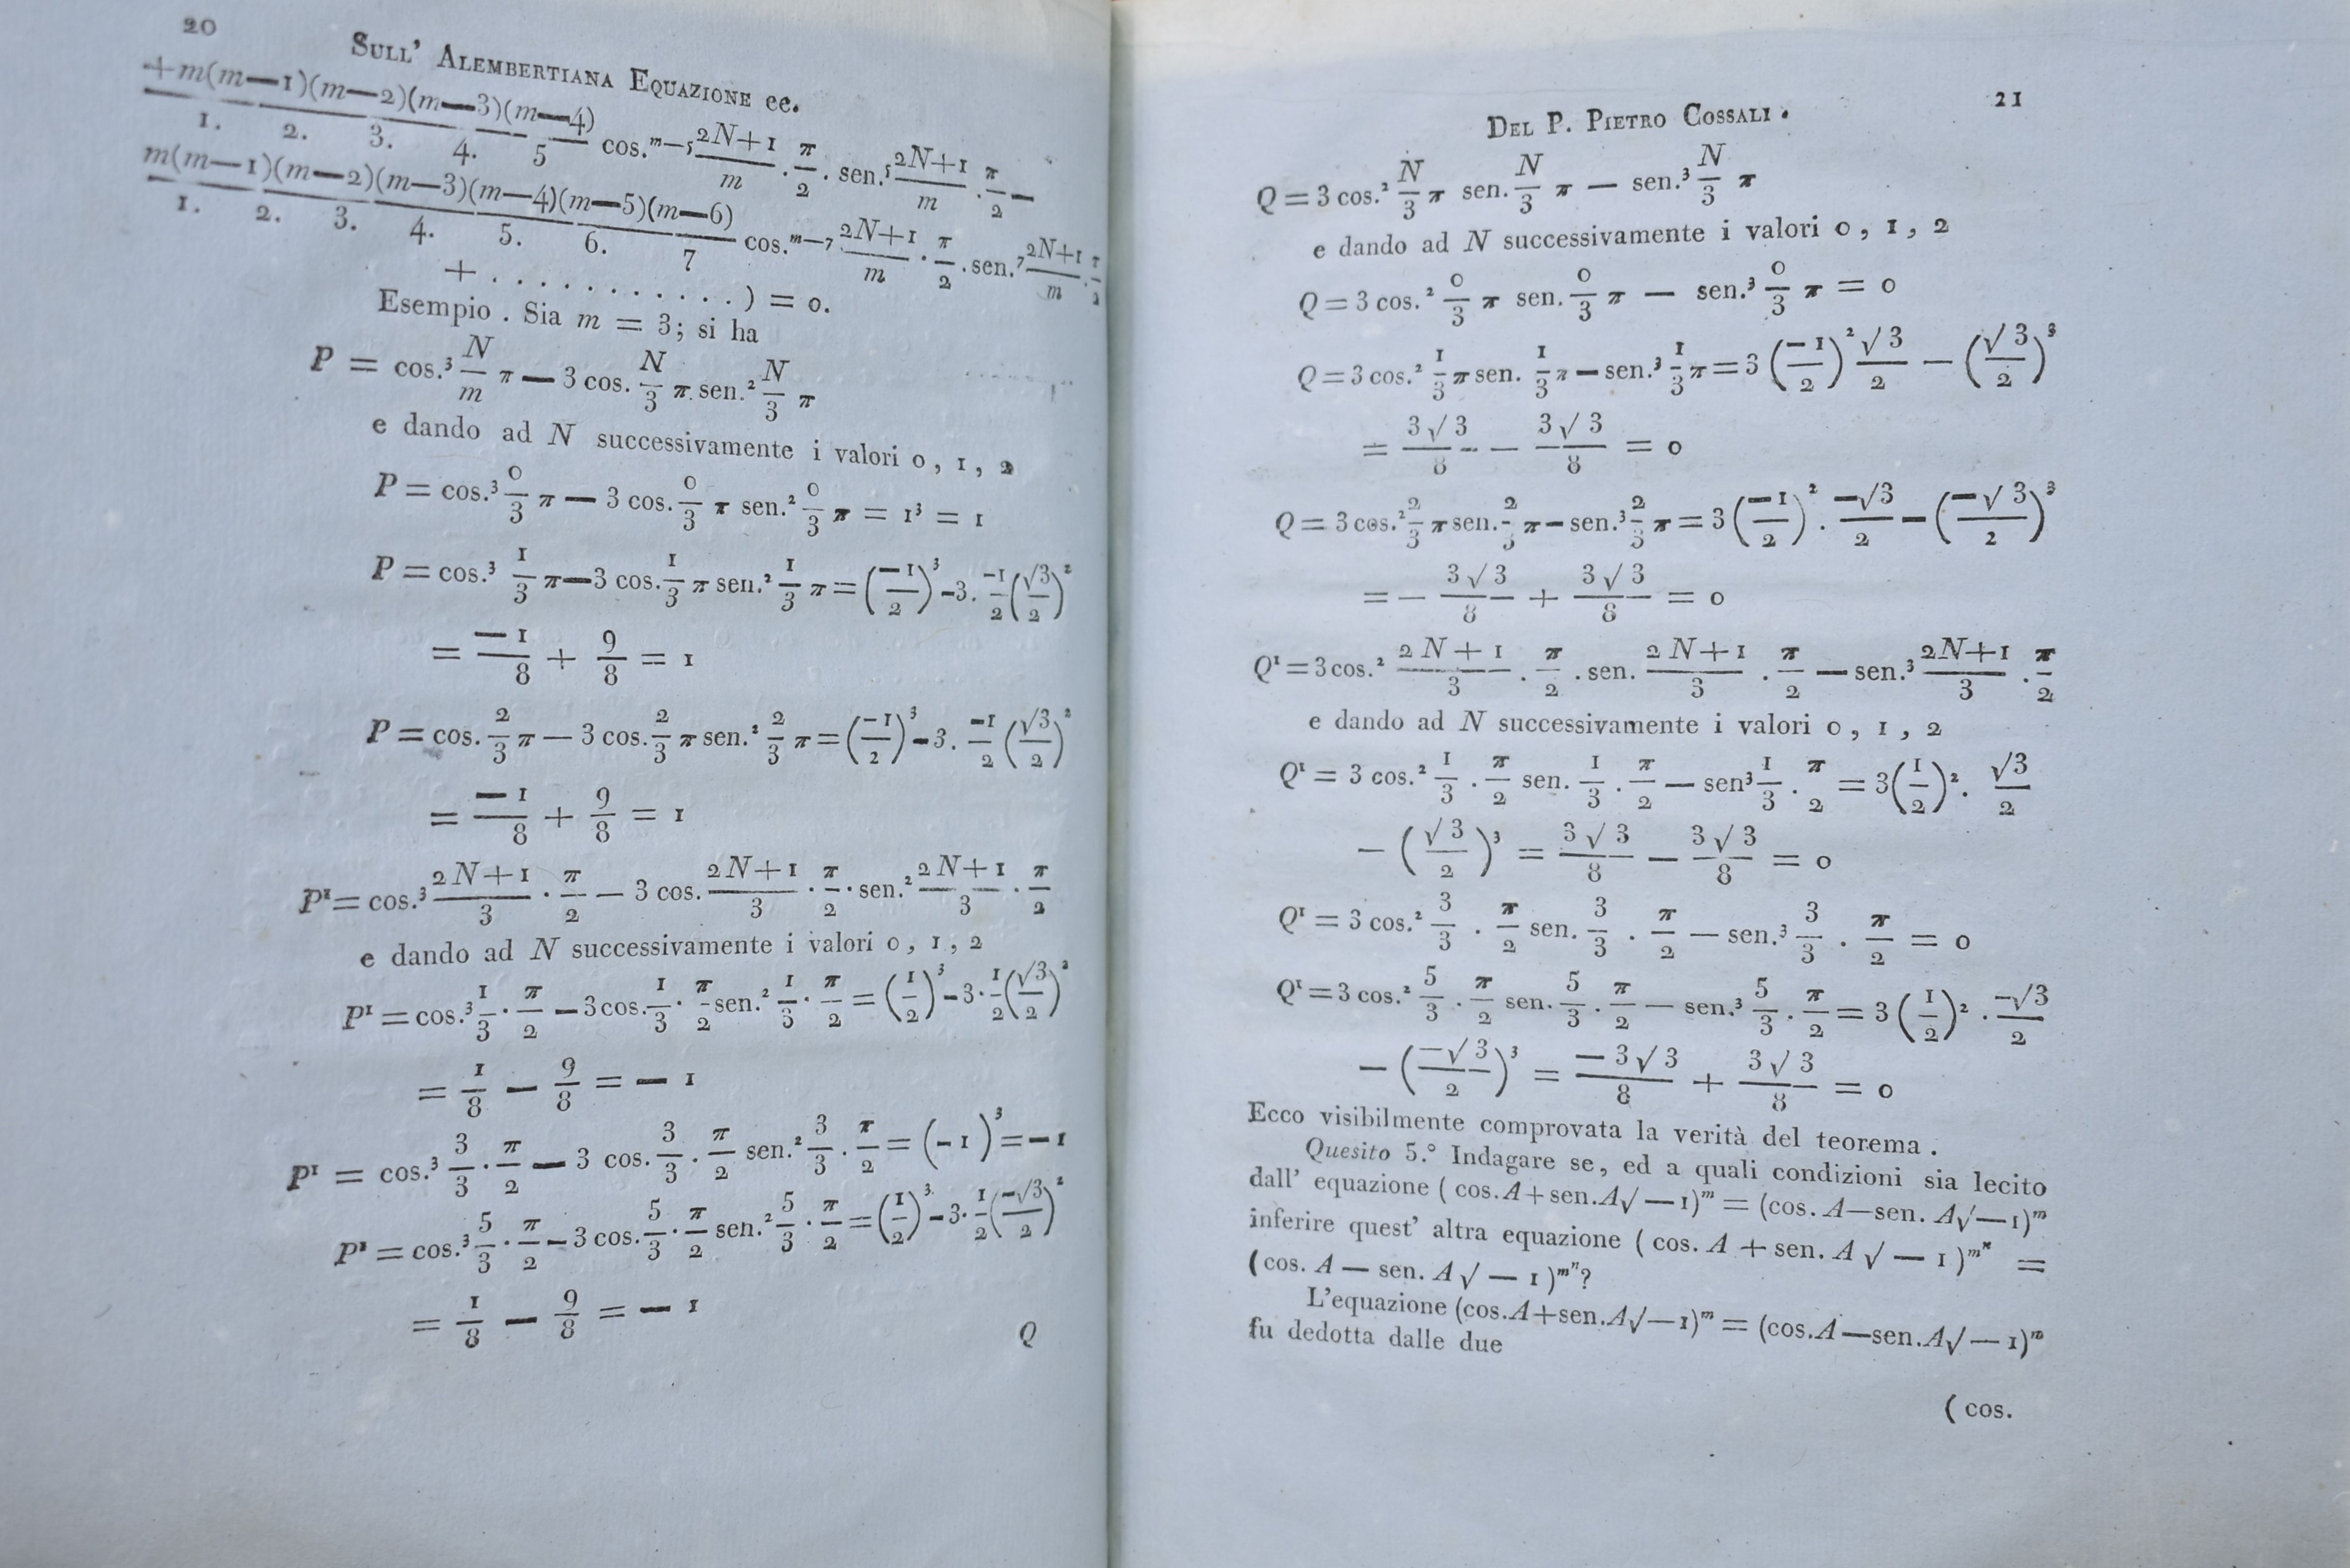 20
SULL' ALEMBERTIANA EQUAZIONE ec.
+m(m—1)(m—2)(m—3)(m—4) / 1. 2. 3. 4. 5 cos.^{m—5} (2N+1)/m . π/2 . sen.^5 (2N+1)/m . π/2 —
m(m—1)(m—2)(m—3)(m—4)(m—5)(m—6) / 1. 2. 3. 4. 5. 6. 7 cos.^{m—7} (2N+1)/m . π/2 . sen.^7 (2N+1)/m . π/2
+ . . . . . . . . . . . ) = 0.
Esempio . Sia m = 3; si ha
P = cos.³ N/m π — 3 cos. N/3 π. sen.² N/3 π
e dando ad N successivamente i valori 0, 1, 2
P = cos.³ 0/3 π — 3 cos. 0/3 π sen.² 0/3 π = 1³ = 1
P = cos.³ 1/3 π—3 cos. 1/3 π sen.² 1/3 π = (—1/2)³ -3. —1/2 (√3/2)²
= —1/8 + 9/8 = 1
P = cos. 2/3 π — 3 cos. 2/3 π sen.² 2/3 π = (—1/2)³ -3. —1/2 (√3/2)²
= —1/8 + 9/8 = 1
P¹ = cos.³ (2N+1)/3 . π/2 — 3 cos. (2N+1)/3 . π/2 . sen.² (2N+1)/3 . π/2
e dando ad N successivamente i valori 0, 1, 2
P¹ = cos.³ 1/3 . π/2 — 3 cos. 1/3 . π/2 sen.² 1/3 . π/2 = (1/2)³ -3. 1/2 (√3/2)²
= 1/8 — 9/8 = — 1
P¹ = cos.³ 3/3 . π/2 — 3 cos. 3/3 . π/2 sen.² 3/3 . π/2 = (-1)³ = — 1
P¹ = cos.³ 5/3 . π/2 — 3 cos. 5/3 . π/2 sen.² 5/3 . π/2 = (1/2)³ -3. 1/2 (—√3/2)²
= 1/8 — 9/8 = — 1
Q
DEL P. PIETRO COSSALI .
21
Q = 3 cos.² N/3 π sen. N/3 π — sen.³ N/3 π
e dando ad N successivamente i valori 0, 1, 2
Q = 3 cos.² 0/3 π sen. 0/3 π — sen.³ 0/3 π = 0
Q = 3 cos.² 1/3 π sen. 1/3 π — sen.³ 1/3 π = 3 (—1/2)² √3/2 — (√3/2)³
= 3√3/8 — 3√3/8 = 0
Q = 3 cos.² 2/3 π sen. 2/3 π — sen.³ 2/3 π = 3 (—1/2)² . —√3/2 — (—√3/2)³
= — 3√3/8 + 3√3/8 = 0
Q¹ = 3 cos.² (2N+1)/3 . π/2 . sen. (2N+1)/3 . π/2 — sen.³ (2N+1)/3 . π/2
e dando ad N successivamente i valori 0, 1, 2
Q¹ = 3 cos.² 1/3 . π/2 sen. 1/3 . π/2 — sen³ 1/3 . π/2 = 3(1/2)². √3/2
— (√3/2)³ = 3√3/8 — 3√3/8 = 0
Q¹ = 3 cos.² 3/3 . π/2 sen. 3/3 . π/2 — sen.³ 3/3 . π/2 = 0
Q¹ = 3 cos.² 5/3 . π/2 sen. 5/3 . π/2 — sen.³ 5/3 . π/2 = 3 (1/2)² . —√3/2
— (—√3/2)³ = —3√3/8 + 3√3/8 = 0
Ecco visibilmente comprovata la verità del teorema .
Quesito 5.° Indagare se, ed a quali condizioni sia lecito
dall' equazione ( cos. A + sen. A√—1)^m = (cos. A—sen. A√—1)^m
inferire quest' altra equazione ( cos. A + sen. A √ — 1 )^{m^n} =
(cos. A — sen. A √ — 1 )^{m^n}?
L'equazione (cos.A+sen.A√—1)^m = (cos.A—sen.A√—1)^m
fu dedotta dalle due
( cos.